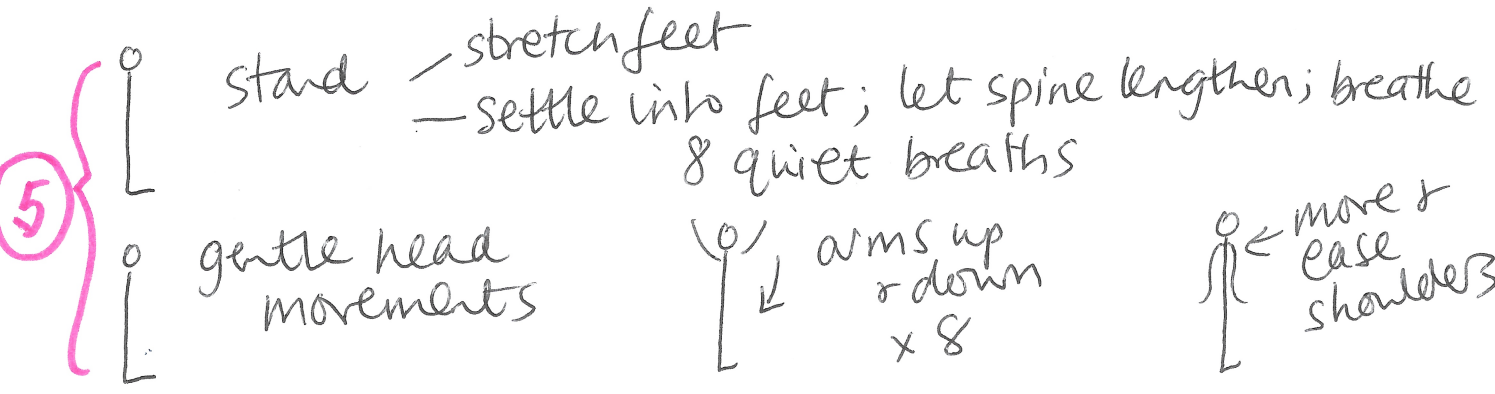 5
stand – stretch feet
– settle into feet; let spine lengthen; breathe
8 quiet breaths
gentle head
movements
arms up
& down
x 8
← move &
ease
shoulders